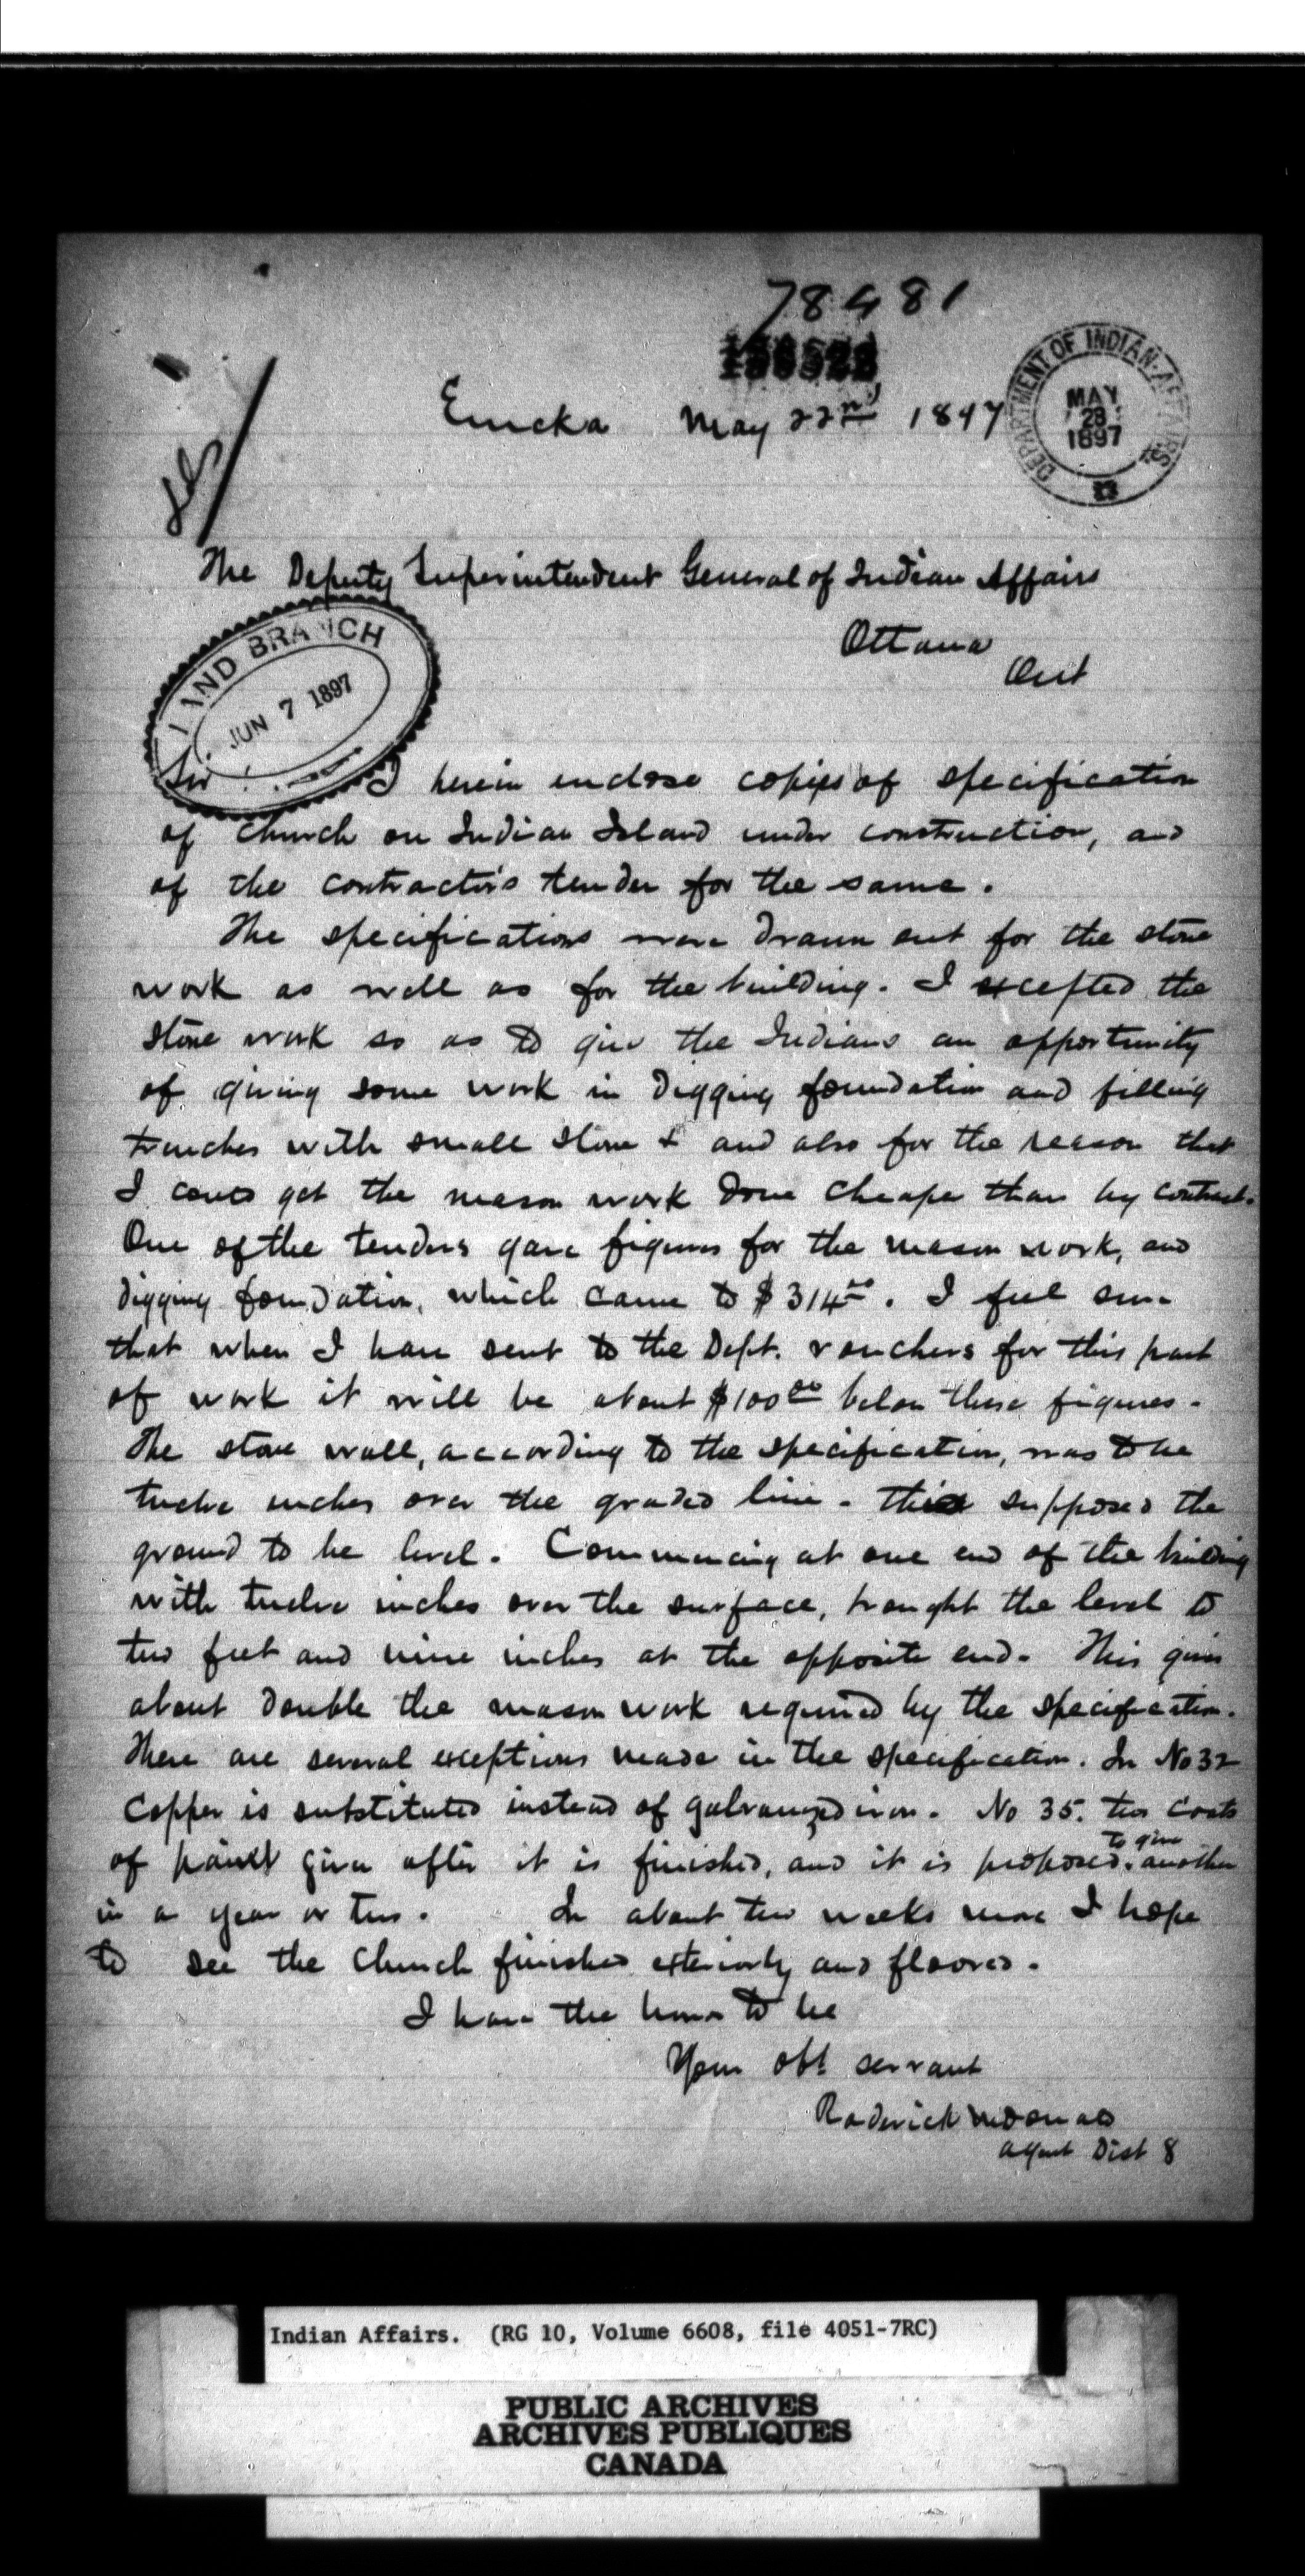 78481
Eureka May 22nd 1897
DEPARTMENT OF INDIAN AFFAIRS.
MAY
28
1897
The Deputy Superintendent General of Indian Affairs
Ottawa
Ont
LAND BRANCH
JUN 7 1897
Sir:
I herein enclose copies of specification
of church on Indian Island under construction, and
of the contractor's tender for the same.
The specifications were drawn out for the stone
work as well as for the building. I excepted the
stone work so as to give the Indians an opportunity
of giving some work in digging foundation and filling
trenches with small stone & and also for the reason that
I could get the mason work done cheaper than by contract.
One of the tenders gave figures for the mason work, and
digging foundation, which came to $314.00. I feel sure
that when I have sent to the Dept. vouchers for this part
of work it will be about $100.00 below these figures.
The stone wall, according to the specification, was to be
twelve inches over the graded line. this supposed the
ground to be level. Commencing at one end of the building
with twelve inches over the surface, brought the level to
two feet and nine inches at the opposite end. This gives
about double the mason work required by the specification.
There are several exceptions made in the specification. In No 32
Copper is substituted instead of galvanized iron. No 35. two coats
of paint given after it is finished, and it is proposed to give another
in a year or two. In about two weeks more I hope
to see the Church finished exteriorly and floored.
I have the honor to be
Your obt servant
Roderick McDonald
Agent Dist 8
Indian Affairs. (RG 10, Volume 6608, file 4051-7RC)
PUBLIC ARCHIVES
ARCHIVES PUBLIQUES
CANADA